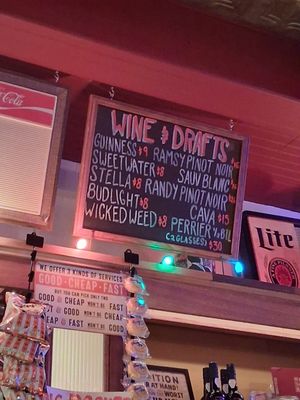 WINE & DRAFTS
GUINNESS $9 RAMSY PINOT NOIR
SWEETWATER $8 SAUV BLANC
STELLA $8 RANDY PINOT NOIR
BUDLIGHT $8 CAVA $15
WICKED WEED $8 PERRIER ½ BTL
(2 GLASSES) $30
Coca-Cola
Lite
WE OFFER 3 KINDS OF SERVICES
GOOD-CHEAP-FAST
BUT YOU CAN PICK ONLY TWO
GOOD & CHEAP WON'T BE FAST
FAST & GOOD WON'T BE CHEAP
CHEAP & FAST WON'T BE GOOD